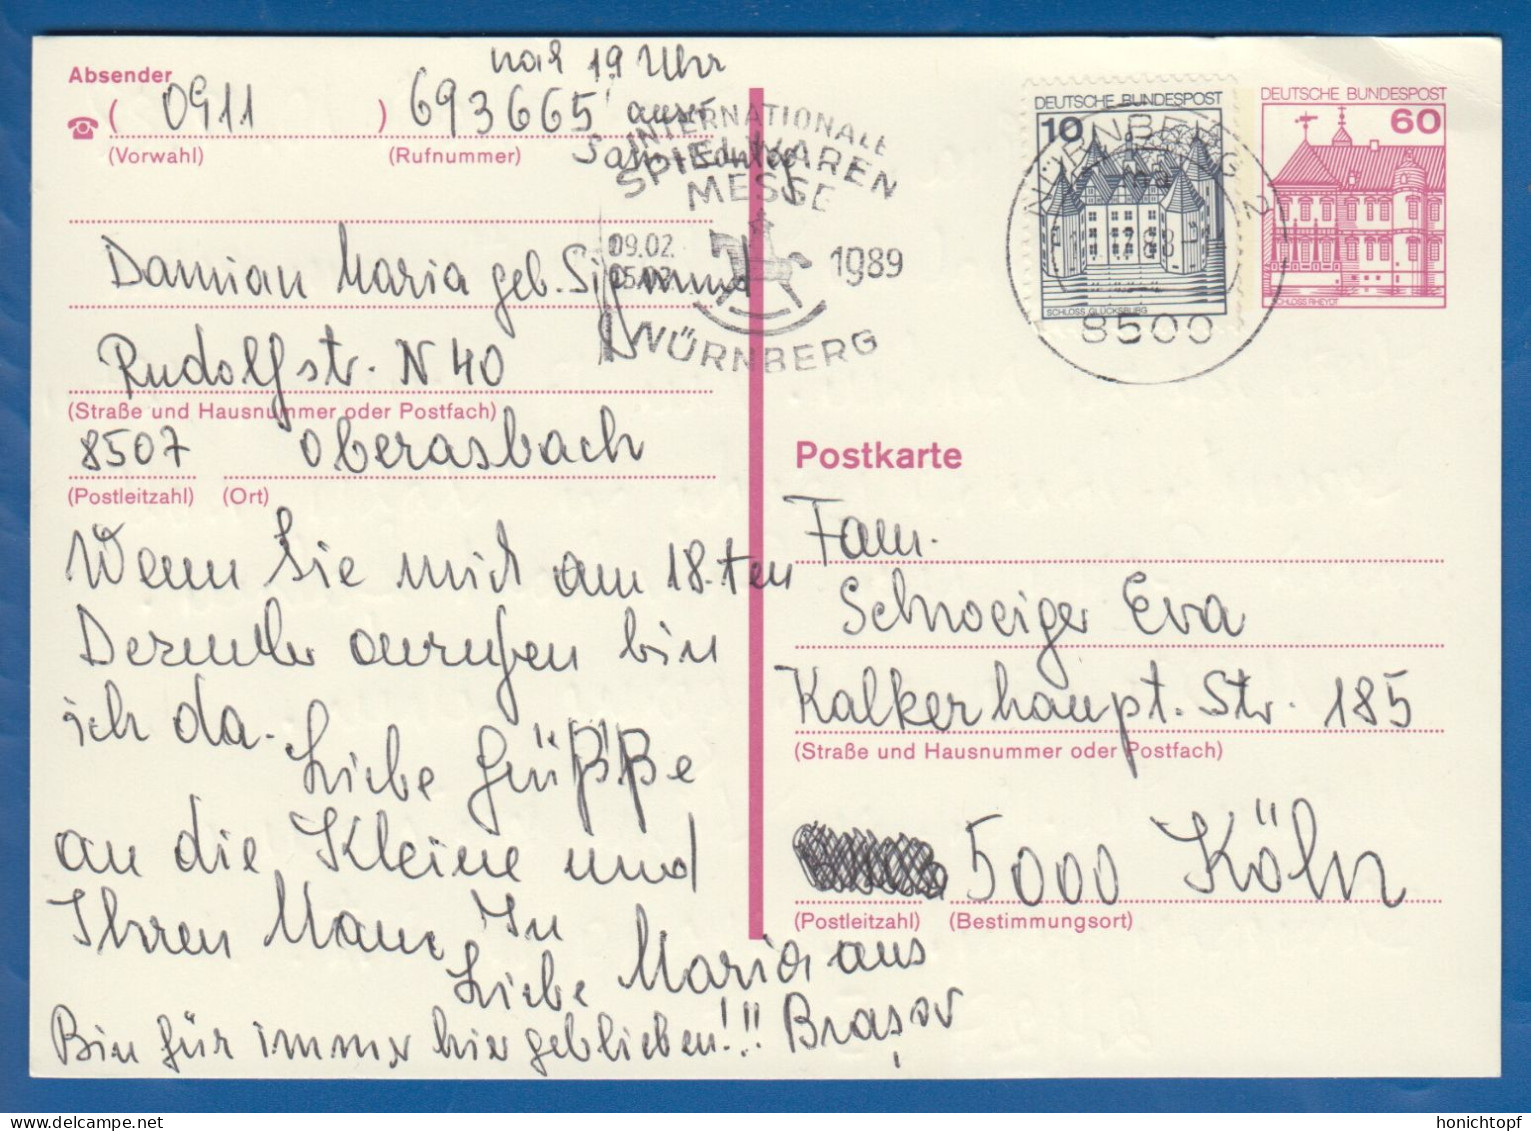 nach 19 Uhr
Absender
( 0911 ) 693665 ausr
(Vorwahl) (Rufnummer)
INTERNATIONALE
SPIELWAREN
MESSE
09.02.
1989
NÜRNBERG
DEUTSCHE BUNDESPOST
10
SCHLOSS GLÜCKSBURG
NÜRNBERG 2
8500
DEUTSCHE BUNDESPOST
60
SCHLOSS RHEYDT
Damian Maria geb.
Rudolfstr. N 40
(Straße und Hausnummer oder Postfach)
8507 Oberasbach
(Postleitzahl) (Ort)
Wenn Sie mich am 18.ten
Dezember anrufen bin
ich da.
Liebe Grüße
an die Kleine und
Ihren Mann In
Liebe Maria aus
Brașov
Bin für immer hier geblieben!!!
Postkarte
Fam.
Schweiger Eva
Kalkerhaupt. Str. 185
(Straße und Hausnummer oder Postfach)
5000 Köln
(Postleitzahl) (Bestimmungsort)
delcampe.net
honichtopf